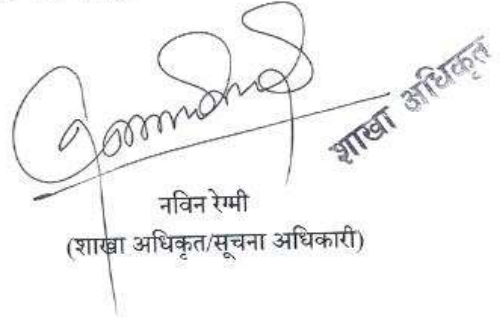 शाखा अधिकृत
नविन रेग्मी
(शाखा अधिकृत/सूचना अधिकारी)